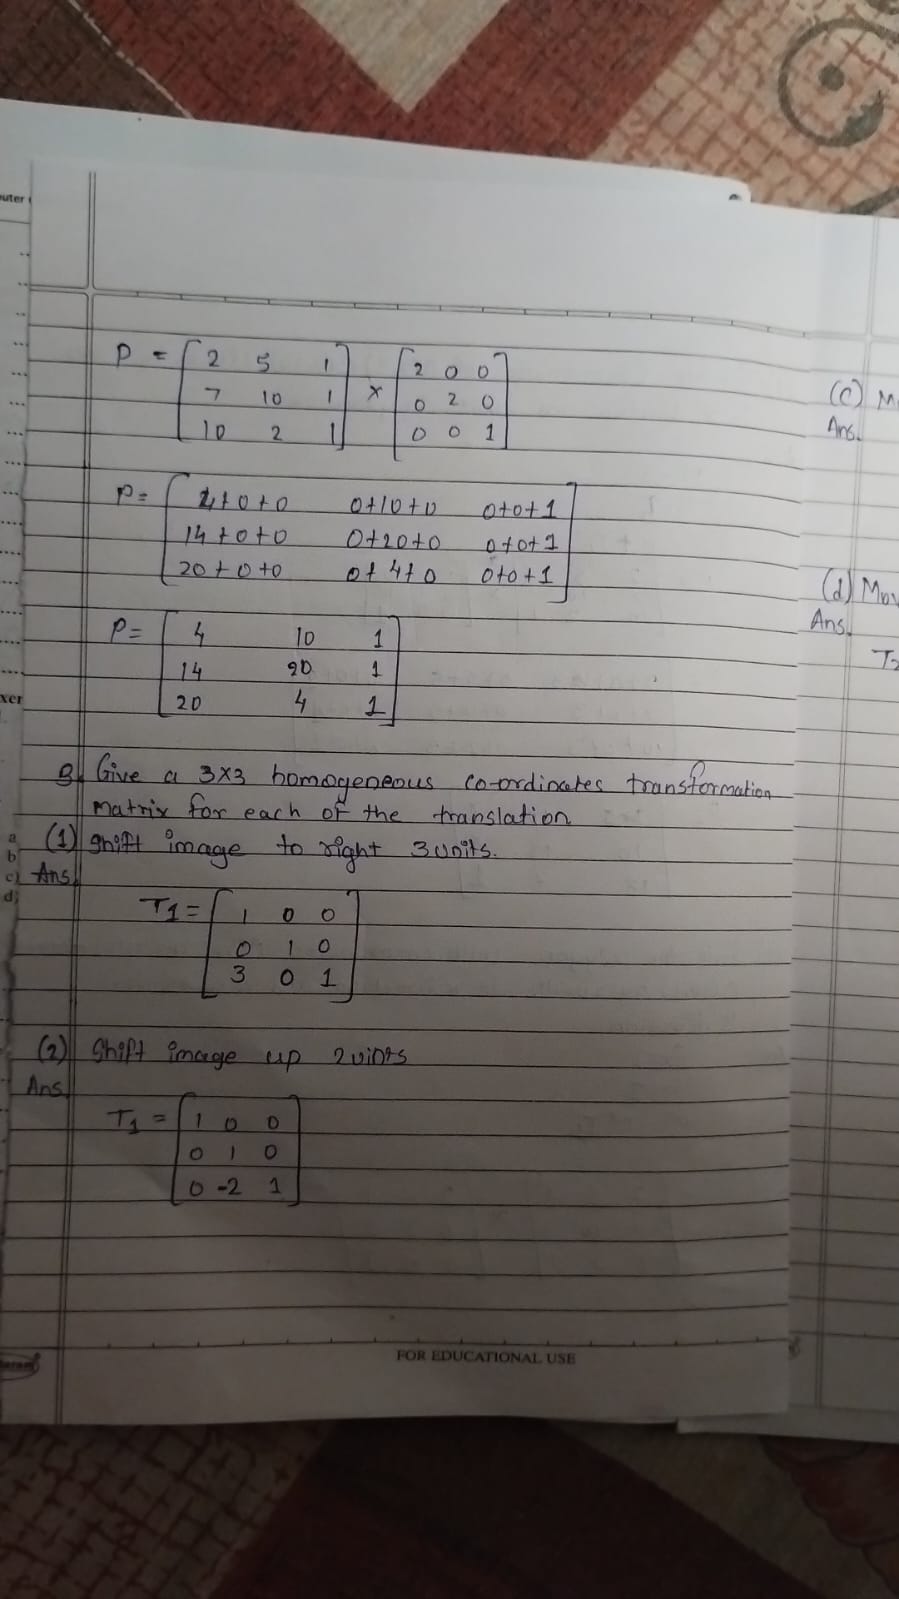 P = [ 2 5 1 ] × [ 2 0 0 ]
7 10 1 0 2 0
10 2 1 0 0 1
P = [ 4+0+0 0+10+0 0+0+1 ]
14+0+0 0+20+0 0+0+1
20+0+0 0+4+0 0+0+1
P = [ 4 10 1 ]
14 20 1
20 4 1
Give a 3×3 homogeneous co-ordinates transformation
matrix for each of the translation
(1) Shift image to right 3 units.
Ans.
T1 = [ 1 0 0 ]
0 1 0
3 0 1
(2) Shift image up 2 uints
Ans.
T1 = [ 1 0 0 ]
0 1 0
0 -2 1
FOR EDUCATIONAL USE
(c)
Ans.
(d)
Ans.
a
b
c)
d)